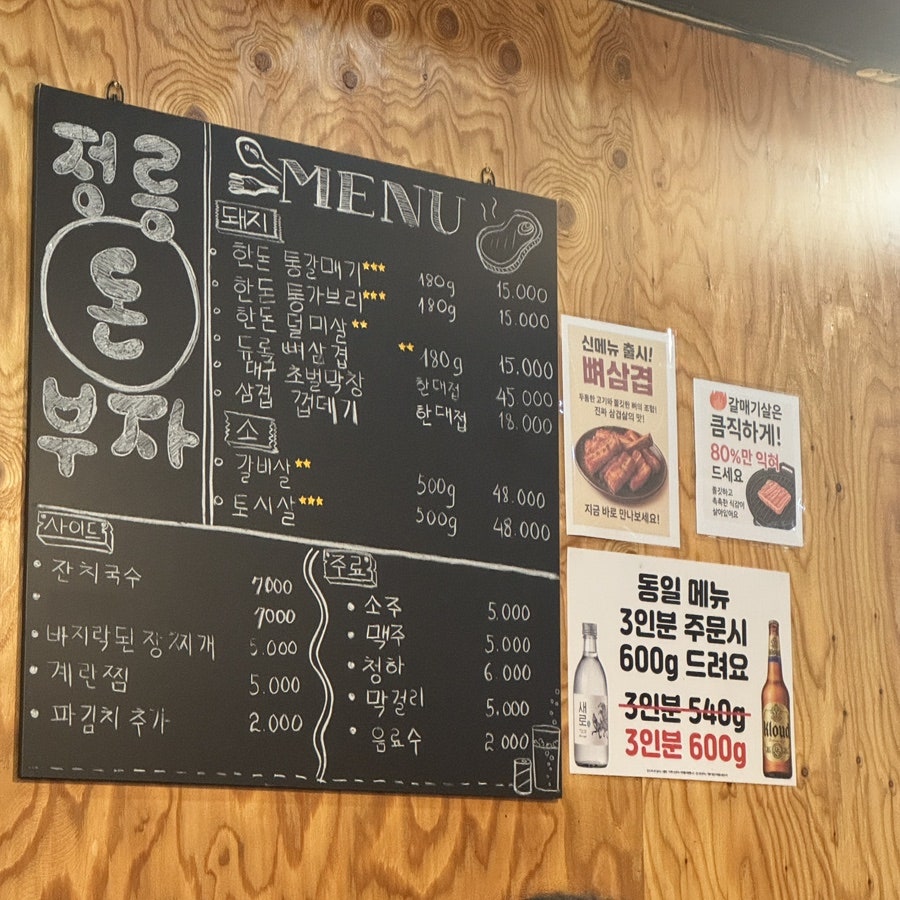 정릉
돈
부자
MENU
돼지
한돈 통갈매기 180g 15.000
한돈 통가브리 180g 15.000
한돈 덜미살
듀록 뼈삼겹 180g 15.000
대구 초벌막창 한대접 45.000
삼겹 껍데기 한대접 18.000
소
갈비살 500g 48.000
토시살 500g 48.000
사이드
잔치국수 7000
7000
바지락된장찌개 5.000
계란찜 5.000
파김치 추가 2.000
주료
소주 5.000
맥주 5.000
청하 6.000
막걸리 5.000
음료수 2000
신메뉴 출시!
뼈삼겹
두툼한 고기와 쫄깃한 뼈의 조합!
진짜 삼겹살의 맛!
지금 바로 만나보세요!
갈매기살은
큼직하게!
80%만 익혀
드세요
쫄깃하고
촉촉한 식감이
살아있어요
동일 메뉴
3인분 주문시
600g 드려요
3인분 540g
3인분 600g
새로
Kloud